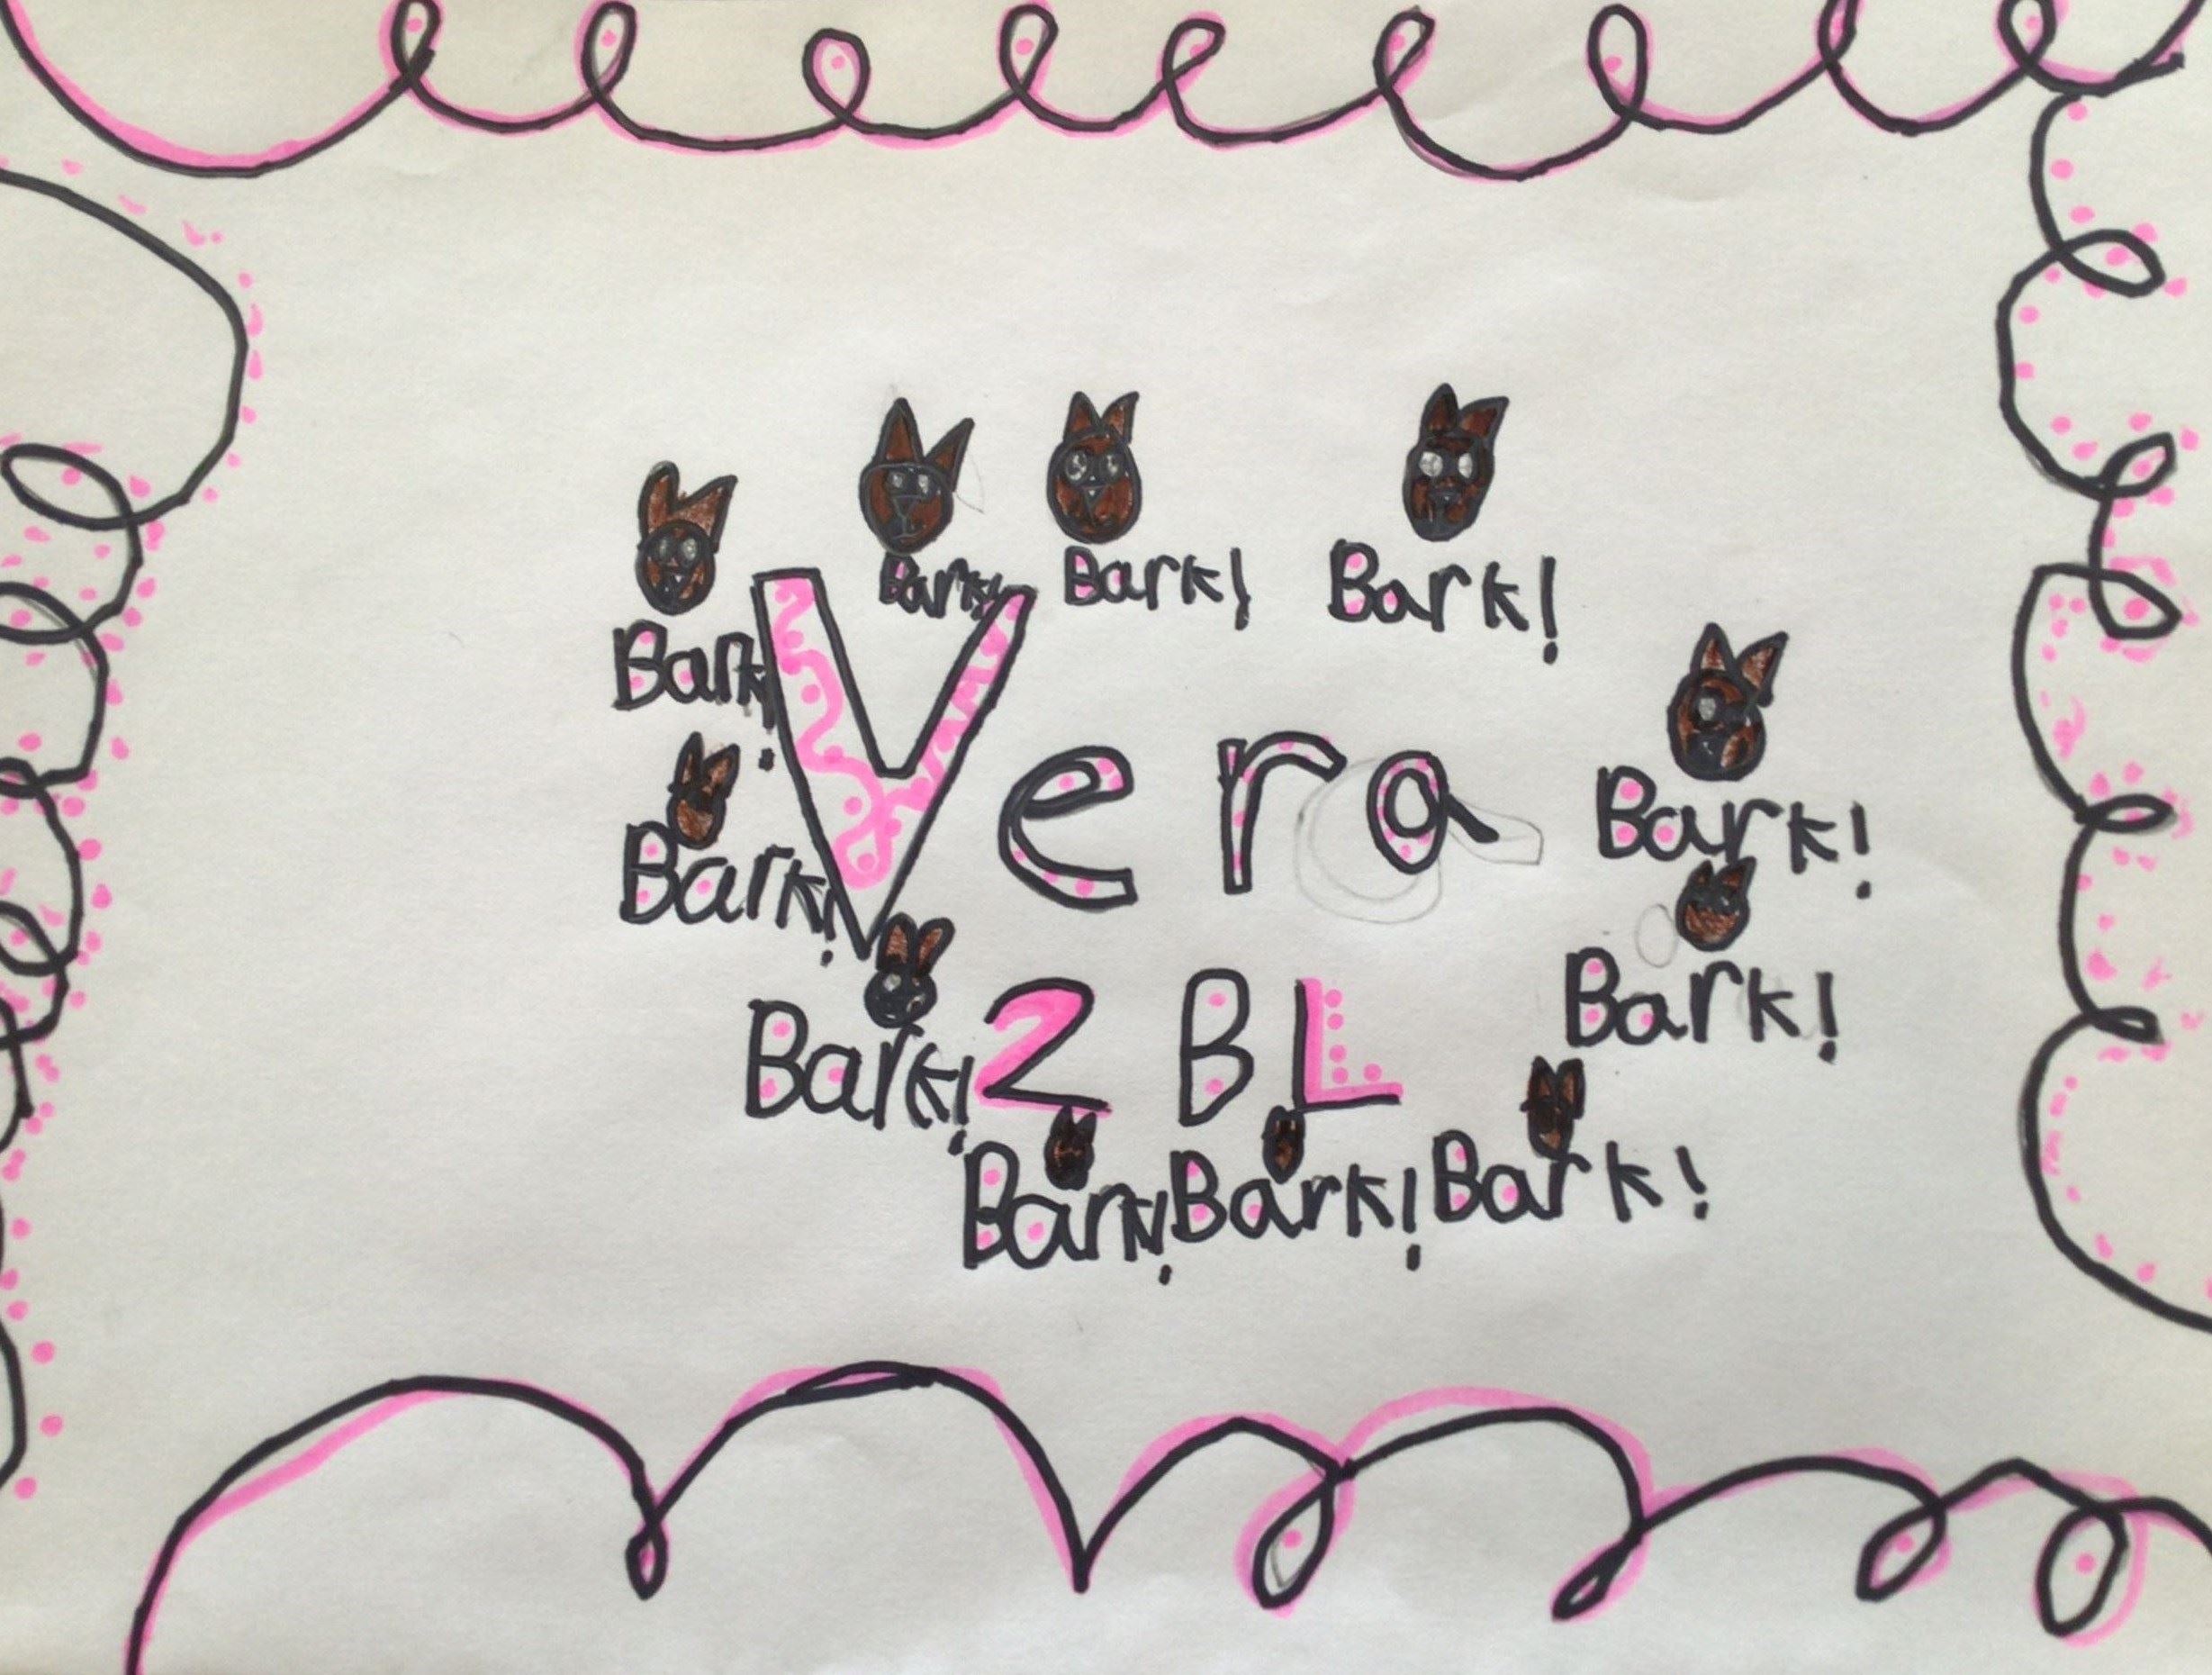 Bark! Bark! Bark!
Bark!
Vera
Bark!
Bark!
Bark!
2BL
Bark!
Bark! Bark! Bark!